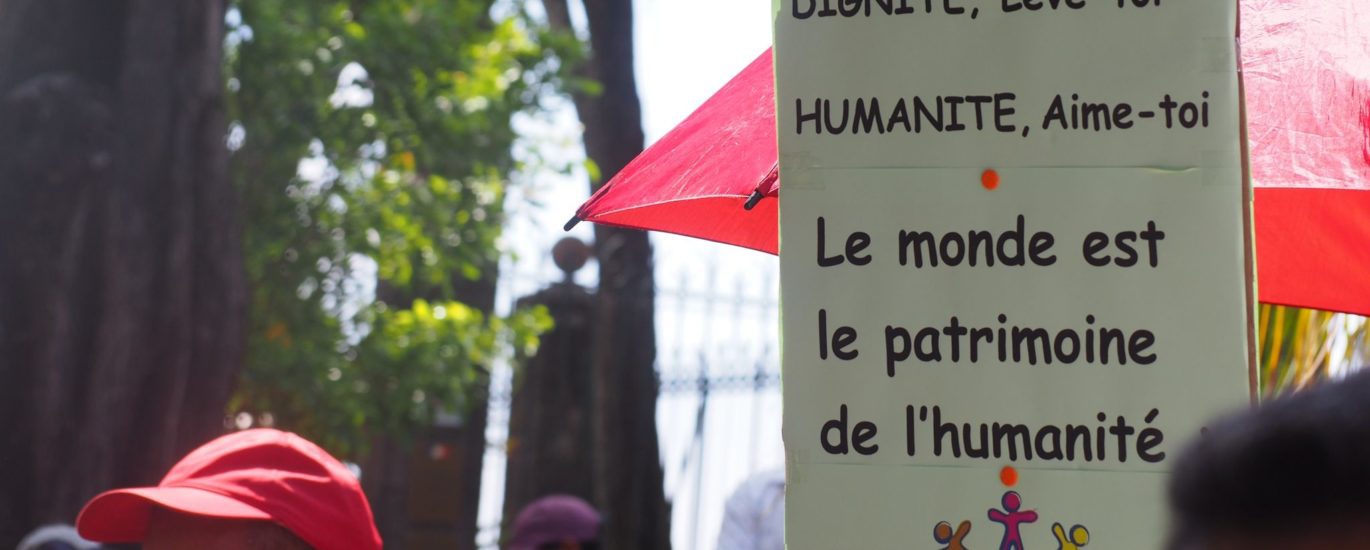 DIGNITE, Lève-toi
HUMANITE, Aime-toi
Le monde est
le patrimoine
de l'humanité